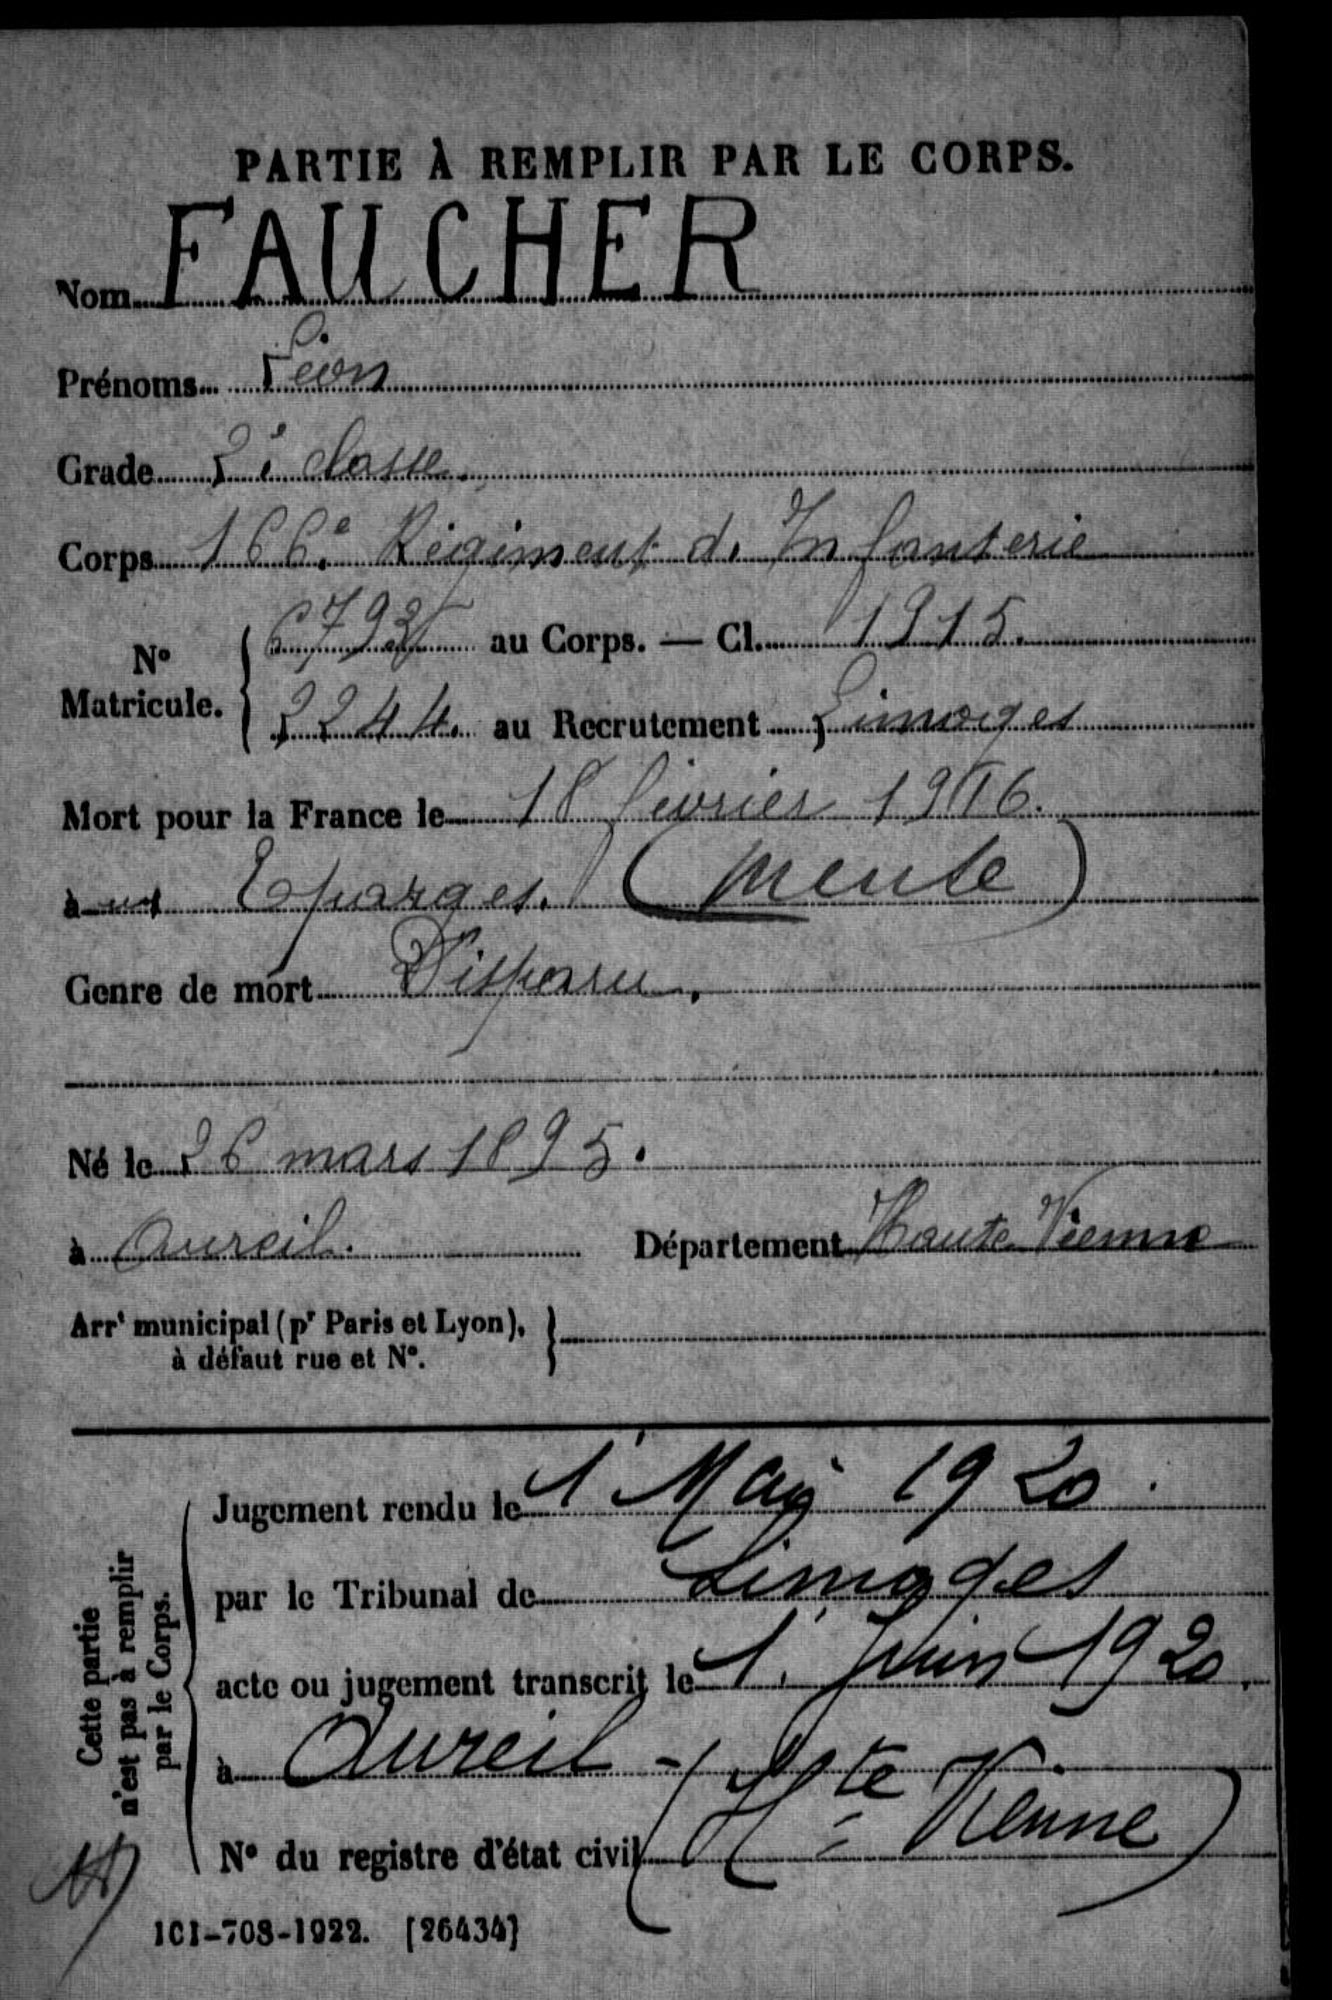 PARTIE À REMPLIR PAR LE CORPS.
Nom FAUCHER
Prénoms Léon
Grade 2è classe.
Corps 166.e Régiment d. Infanterie
N° Matricule. { 6792 au Corps. — Cl. 1915.
2244. au Recrutement Limoges
Mort pour la France le 18 février 1916.
à Eparges. (Meuse)
Genre de mort Disparu.
Né le 26 mars 1895.
à Aureil. Département Haute Vienne
Arrt municipal (pr Paris et Lyon),
à défaut rue et N°.
Cette partie
n'est pas à remplir
par le Corps.
Jugement rendu le 1 Mai 1920.
par le Tribunal de Limoges
acte ou jugement transcrit le 1. Juin 1920.
à Aureil - (Hte Vienne)
N° du registre d'état civil
101-708-1922. [26434]